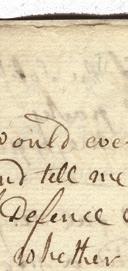 would ever
and tell me
Defence
whether